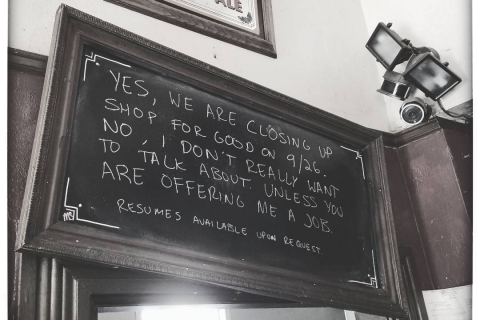 ALE
YES, WE ARE CLOSING UP
SHOP FOR GOOD ON 9/26.
NO, I DON'T REALLY WANT
TO TALK ABOUT. UNLESS YOU
ARE OFFERING ME A JOB.
RESUMES AVAILABLE UPON REQUEST.